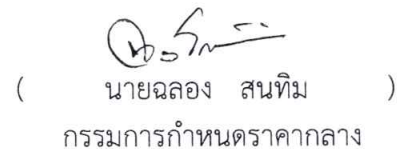 ( นายฉลอง สนทิม )
กรรมการกำหนดราคากลาง